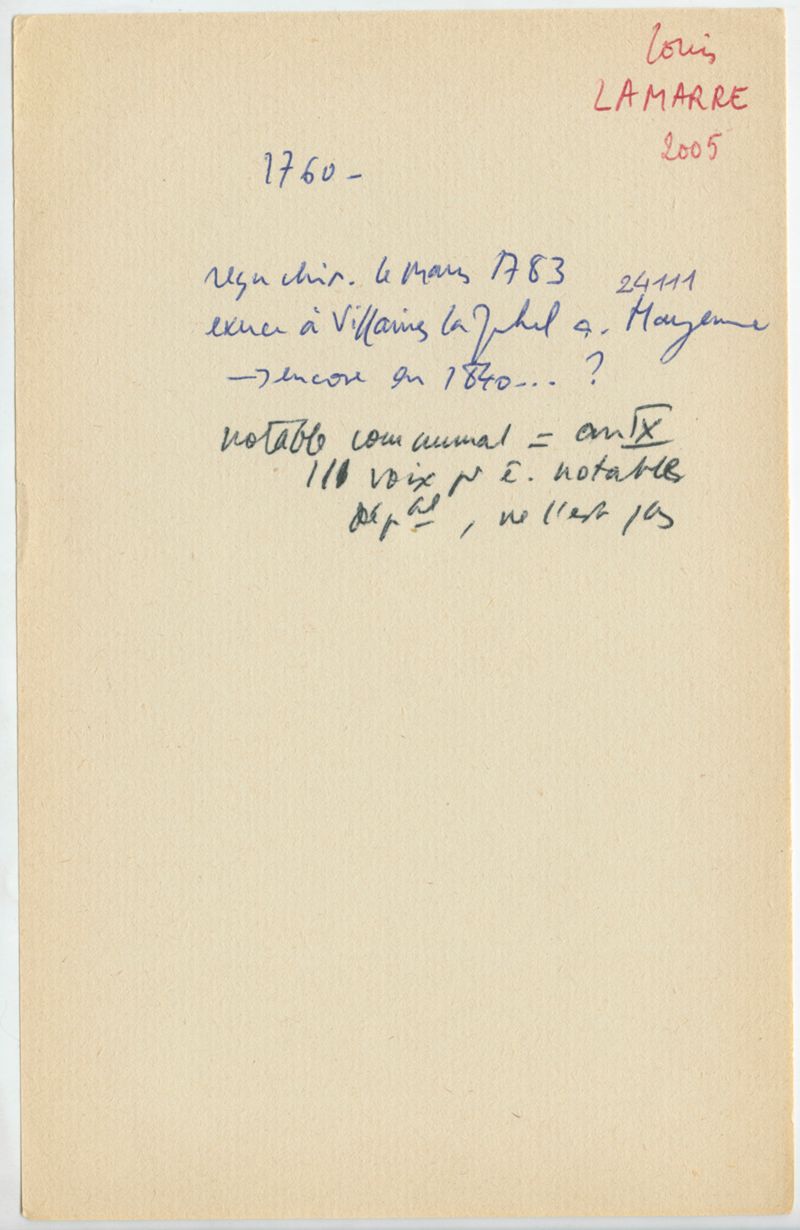 Louis
LAMARRE
2005
1760 -
reçu chir. Le Mans 1783
24111
exerce à Villaines la Juhel a. Mayenne
→ encore en 1840... ?
notable communal = an IX
111 voix pr ê. notables
dépal, ne l'est pas